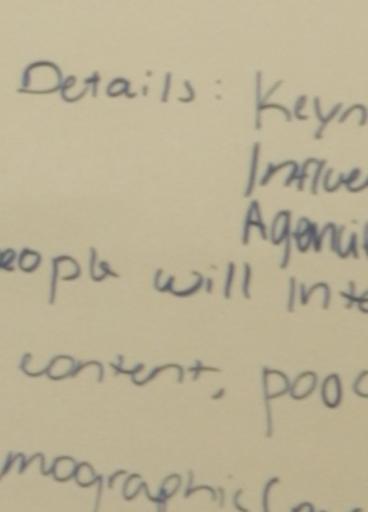 Details: Keyn
Influe
Agenci
eople will inte
content, pooc
mographic(